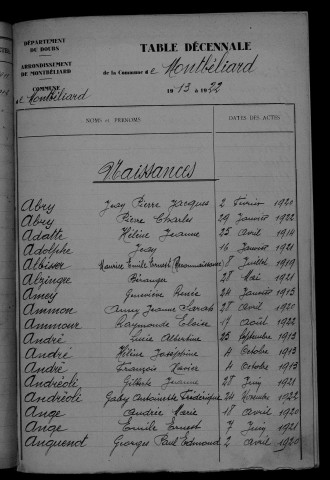 DÉPARTEMENT
DU DOUBS
ARRONDISSEMENT
DE MONTBÉLIARD
COMMUNE
de Montbéliard
TABLE DÉCENNALE
de la Commune de Montbéliard
1913 à 1922
NOMS et PRÉNOMS DATES DES ACTES
Naissances
Abry Jean Pierre Jacques 2 Février 1920
Abry Pierre Charles 29 Janvier 1922
Adatte Hélène Jeanne 25 Avril 1914
Adolphe Jean 16 Janvier 1921
Albiser Maurice Emile Ernest (Reconnaissance) 8 Juillet 1919
Alzingre Béranger 28 Mai 1921
Amey Geneviève Renée 24 Janvier 1915
Ammon Anny Jeanne Sarah 28 Avril 1920
Ammour Raymonde Eloïse 17 Août 1922
André Lucie Albertine 25 Septembre 1913
André Hélène Joséphine 4 Octobre 1913
André François Xavier 4 Octobre 1915
Andréoli Gilberte Jeanne 28 Juin 1921
Andréoli Gaby Antoinette Frédérique 24 Novembre 1922
Ange Andrée Marie 18 Avril 1920
Ange Emile Ernest 7 Juin 1921
Anguenot Georges Paul Edmond 2 Avril 1920